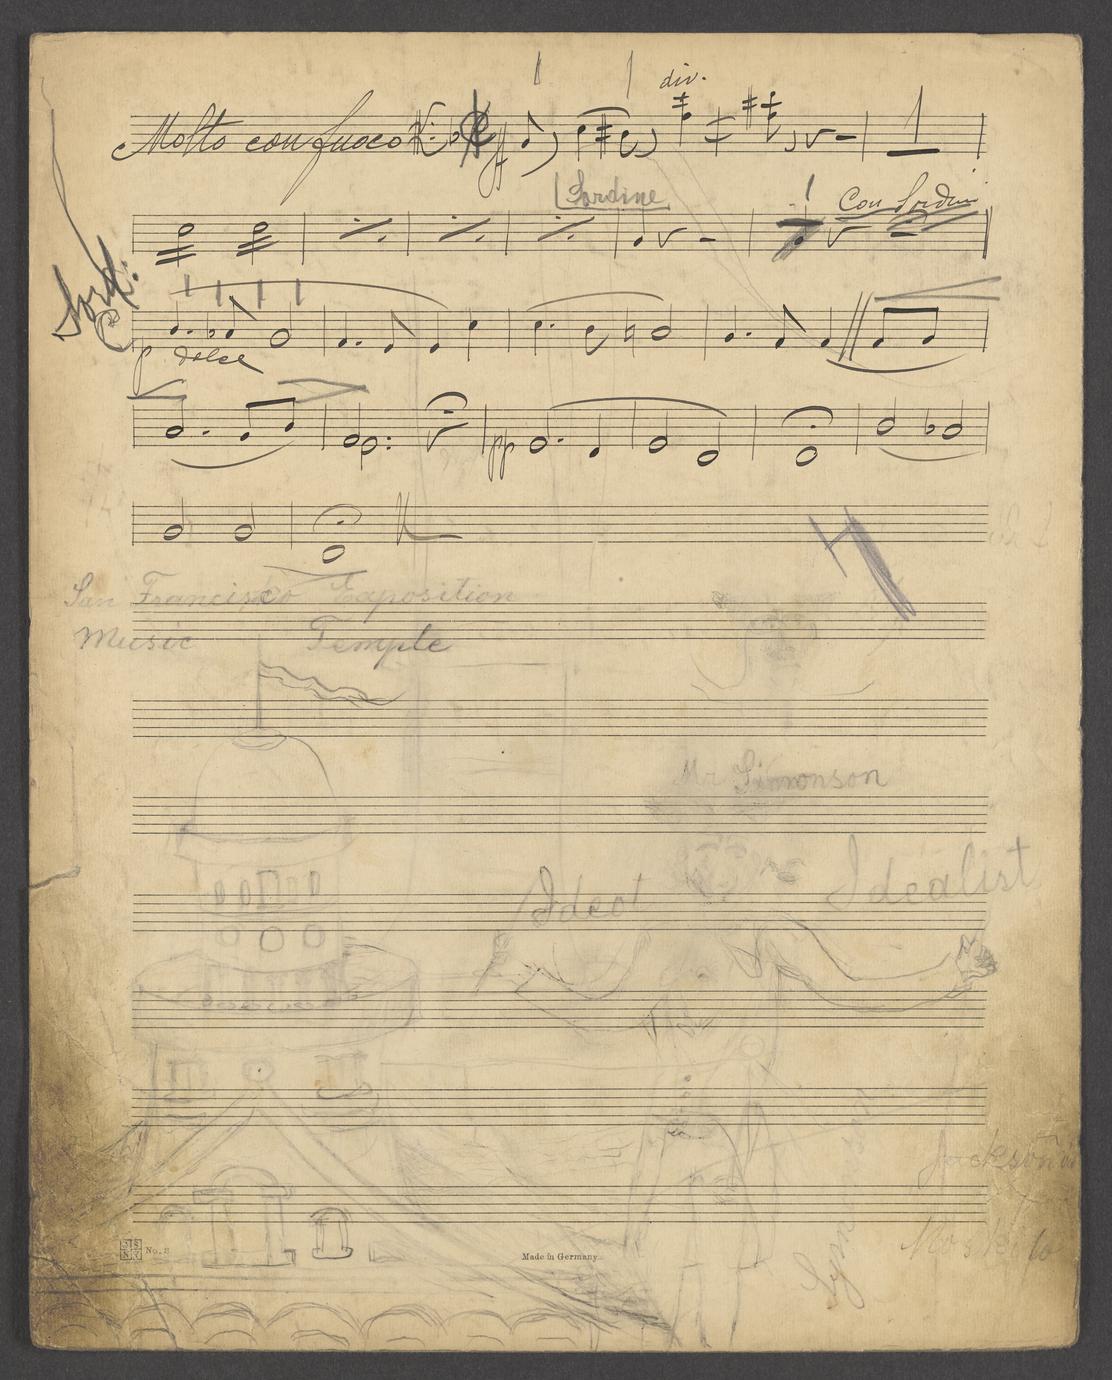 Molto con fuoco ff div. 1
Sordine Con Sordini
Sord:
p dolce
pp
San Francisco Exposition
Music Temple
Mr Simonson
Ideot Idealist
Jackson
No. 8 Made in Germany